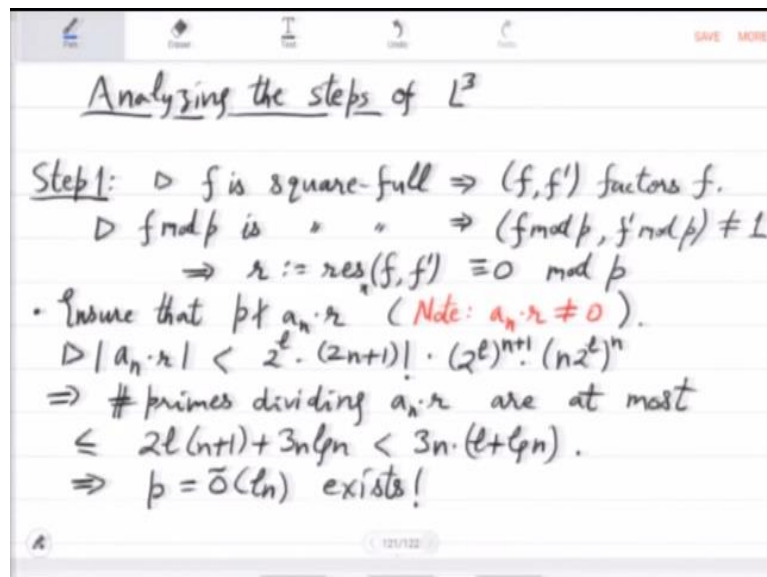 Pen Eraser Text Undo Redo SAVE MORE
Analyzing the steps of L³
Step 1: ▷ f is square-full ⇒ (f, f') factors f.
▷ f mod p is " " ⇒ (f mod p, f' mod p) ≠ 1
⇒ r := res_x(f, f') ≡ 0 mod p
• Ensure that p ∤ a_n·r (Note: a_n·r ≠ 0).
▷ |a_n·r| < 2^ℓ · (2n+1)! · (2^ℓ)^{n+1} · (n2^ℓ)^n
⇒ # primes dividing a_n·r are at most
≤ 2ℓ(n+1) + 3n lg n < 3n·(ℓ+lg n).
⇒ p = Õ(ℓn) exists!
121/122